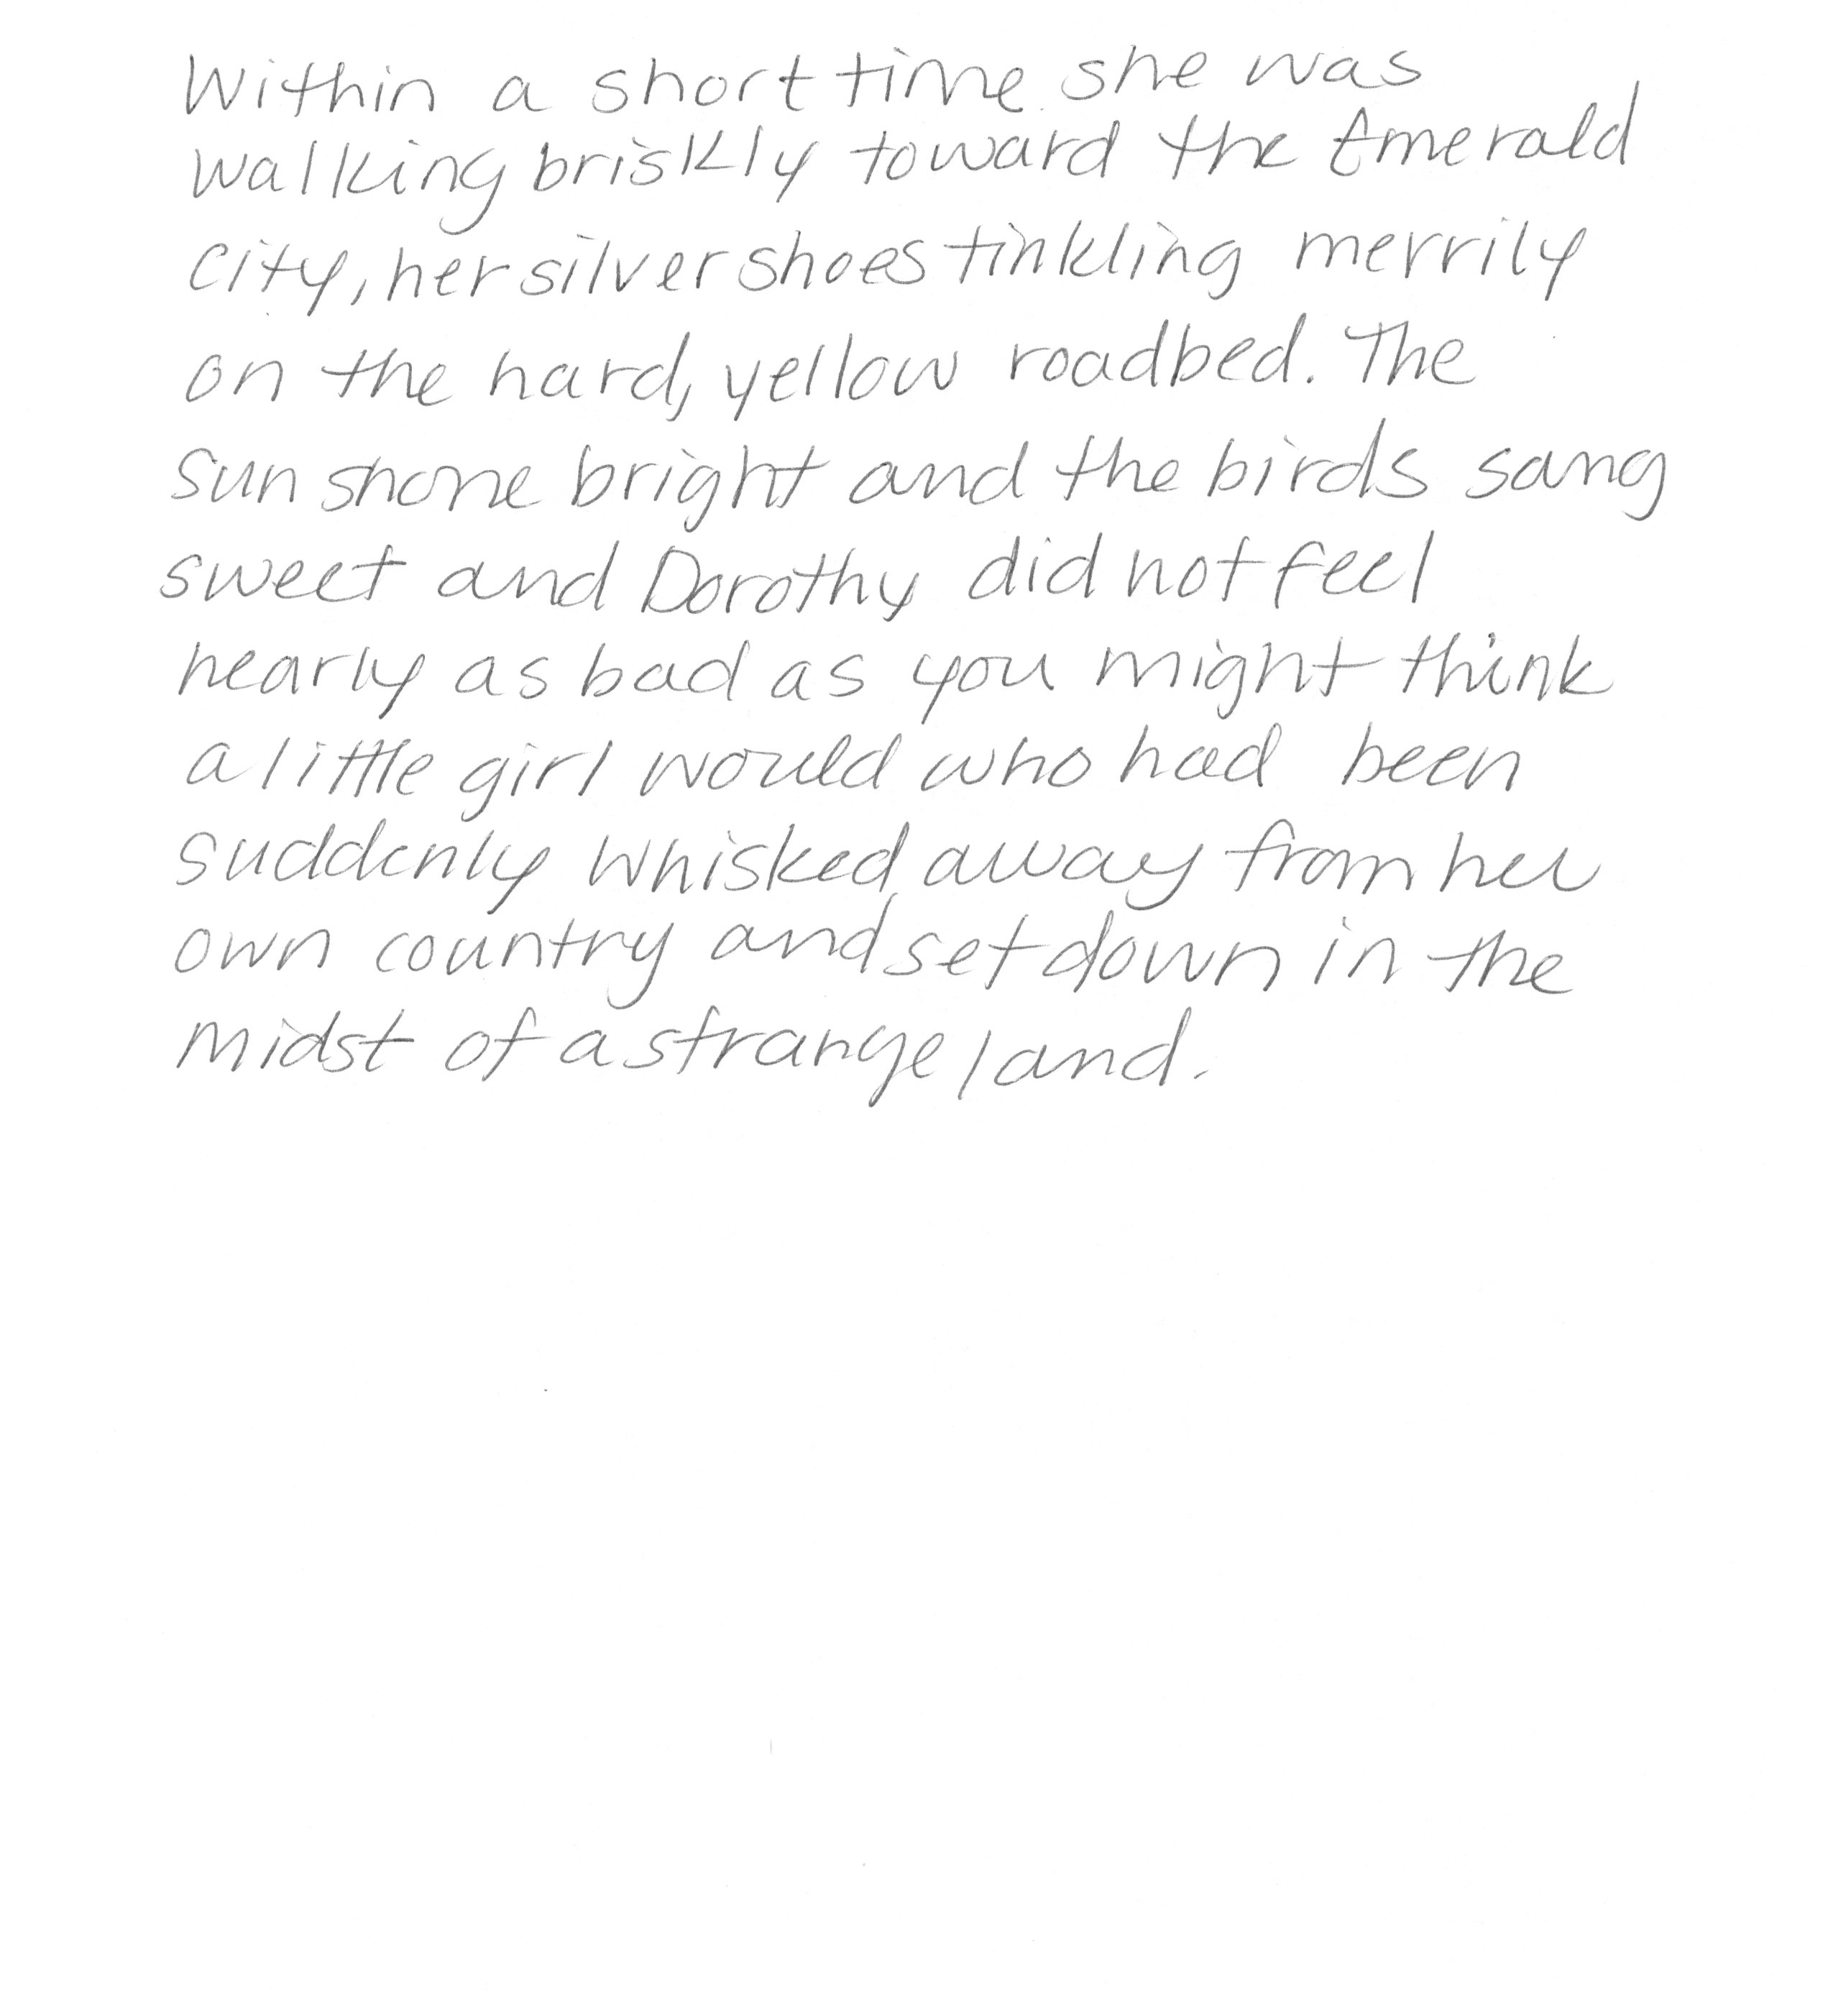 Within a short time she was
walking briskly toward the Emerald
City, her silver shoes tinkling merrily
on the hard, yellow roadbed. The
sun shone bright and the birds sang
sweet and Dorothy did not feel
nearly as bad as you might think
a little girl would who had been
suddenly whisked away from her
own country and set down in the
midst of a strange land.